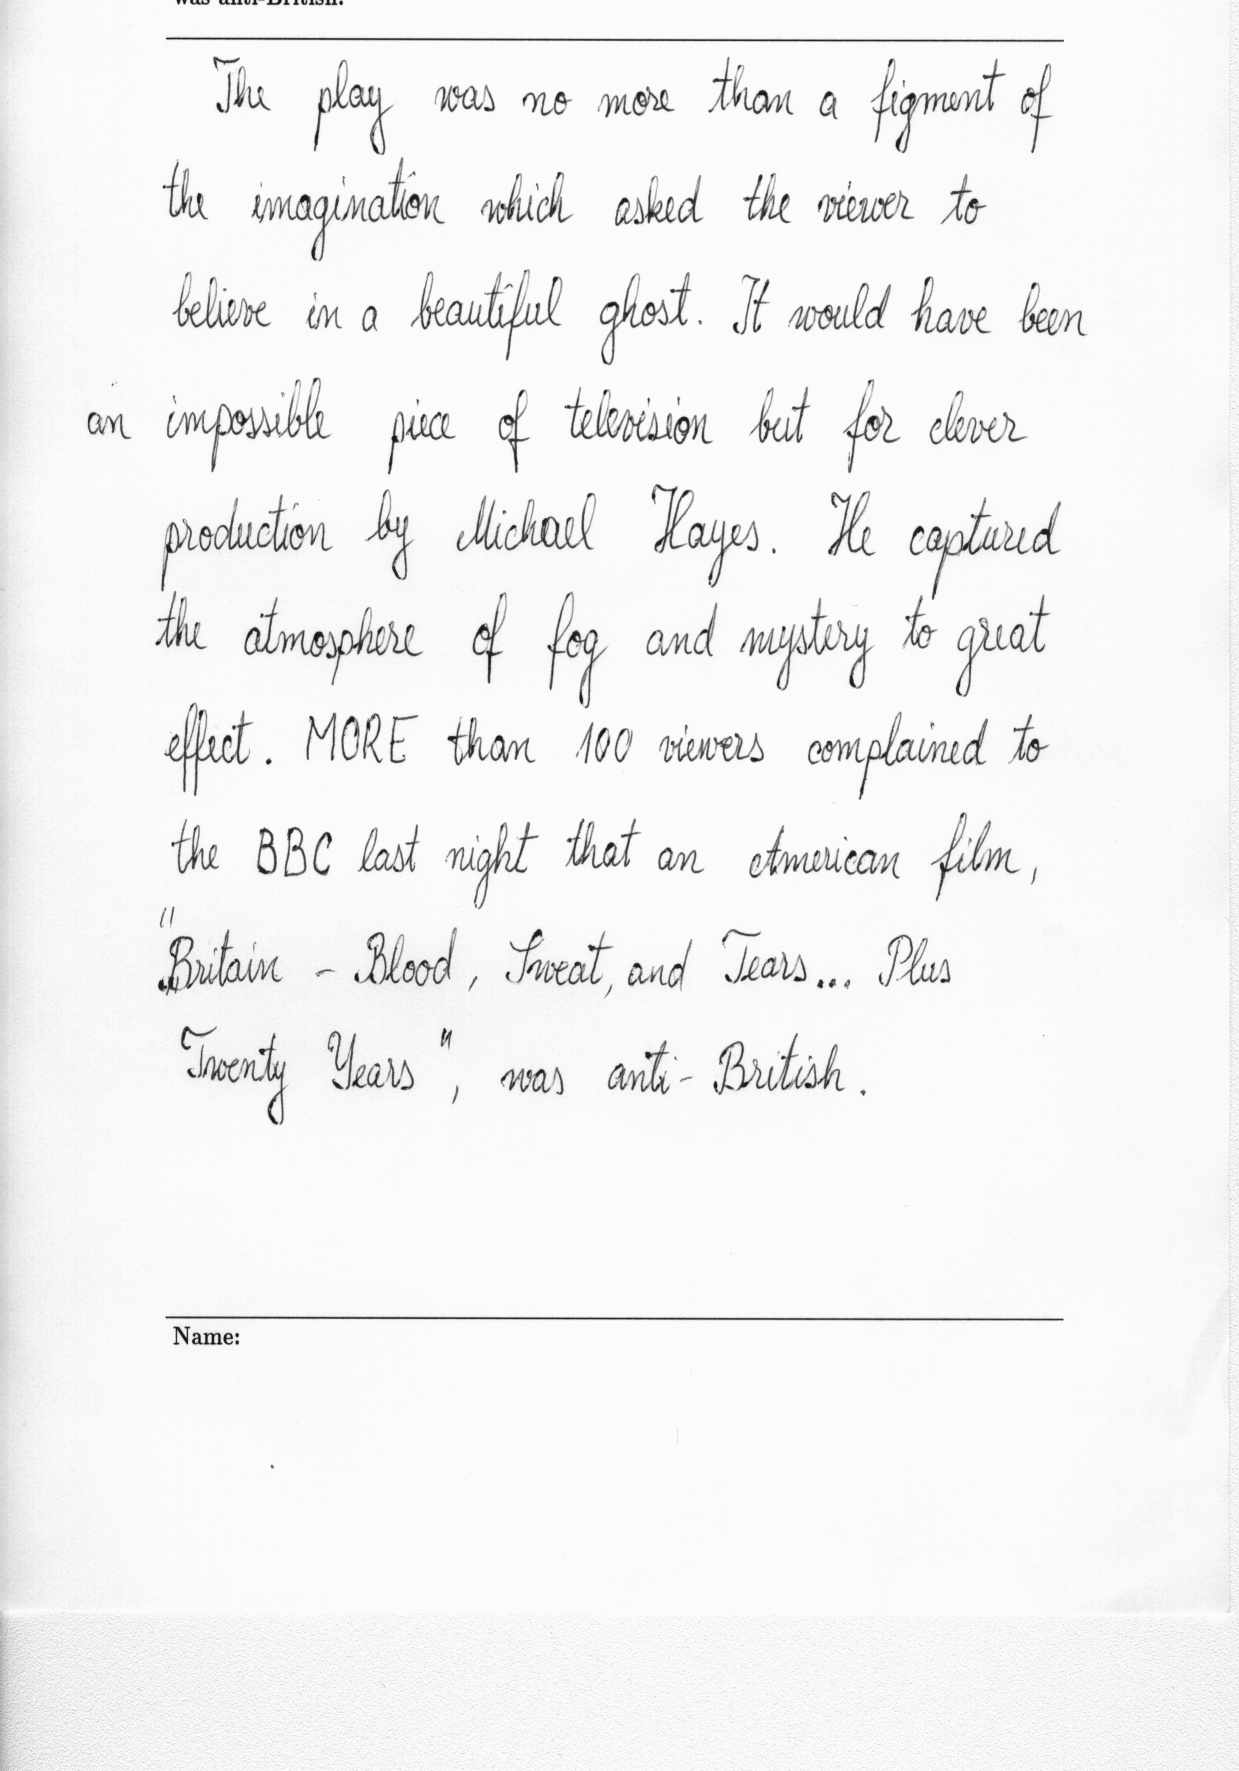 was anti-British.
The play was no more than a figment of
the imagination which asked the viewer to
believe in a beautiful ghost. It would have been
an impossible piece of television but for clever
production by Michael Hayes. He captured
the atmosphere of fog and mystery to great
effect. MORE than 100 viewers complained to
the BBC last night that an American film,
"Britain - Blood, Sweat, and Tears... Plus
Twenty Years", was anti-British.
Name: